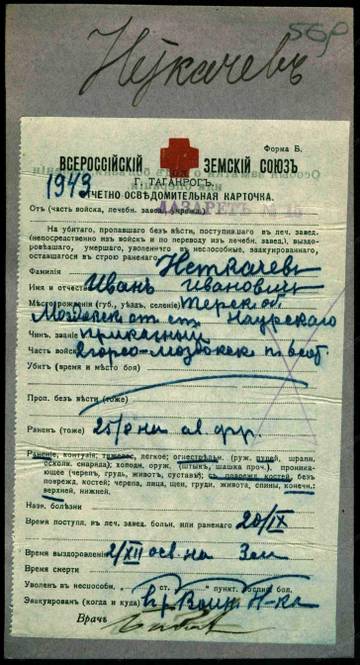 Нѣткачевъ
56р
Форма Б.
ВСЕРОССІЙСКІЙ ЗЕМСКІЙ СОЮЗЪ
Г. ТАГАНРОГЪ.
1949
ОТЧЕТНО ОСВѢДОМИТЕЛЬНАЯ КАРТОЧКА.
ЛАЗАРЕТЪ №
Отъ (часть войска, лечебн. завед., учрежд.)
На убитаго, пропавшаго безъ вѣсти, поступившаго въ леч. завед.
(непосредственно изъ войскъ и по переводу изъ лечебн. завед.), выздо-
ровѣвшаго, умершаго, уволеннаго въ неспособные, эвакуированнаго,
оставшагося въ строю раненаго.
Фамилія Неткачевъ
Имя и отчество Иванъ Ивановичъ
Мѣсторожденія (губ., уѣзд, селеніе) Терской
Моздокск от. ст. Наурскаго
Чин. званіе приказный
Часть войскъ Горско-Моздокск п.
Убитъ (время и мѣсто боя)
Проп. безъ вѣсти (тоже)
Раненъ (тоже) на фр.
Раненіе, контузія; тяжелое, легкое; огнестрѣльн. (руж. пулей, шрапн.
осколк. снаряда); холодн. оруж. (штыкъ, шашка проч.). проникаю-
щее (черепъ, грудь, животъ, суставъ); съ поврежд. костей, безъ
поврежд. костей; черепа, лица, шеи, груди, живота, спины, конечн.:
верхней, нижней.
Назв. болѣзни
Время поступл. въ леч. завед. больн. или раненаго 20/IX
Время выздоровленія 2/XII осв. на
Время смерти
Уволенъ въ неспособн. " ст. " пунктъ роспис. бол.
Эвакуированъ (когда и куда) Воин. Н-ка
Врачъ